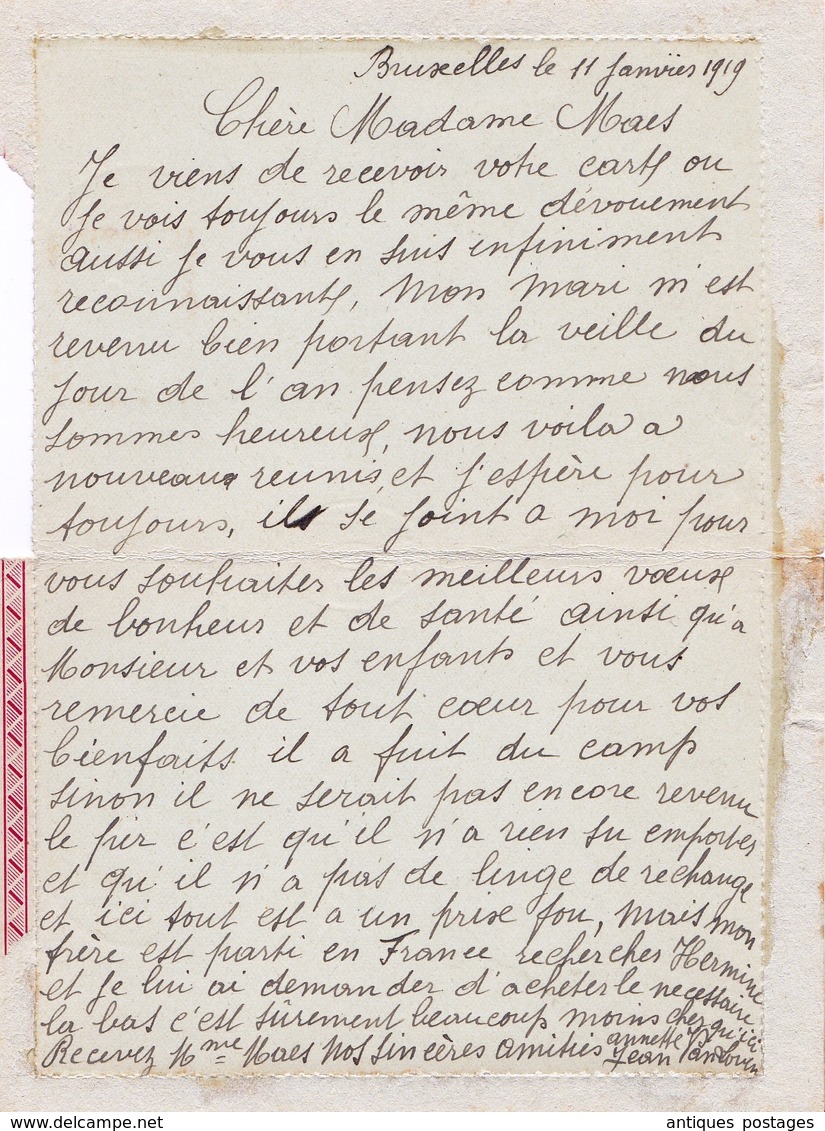 Bruxelles le 11 Janvïer 1919
Chère Madame Maes
Je viens de recevoir votre carte ou
je vois toujours le même dévouement
aussi je vous en suis infiniment
reconnaissante, Mon mari m'est
revenu bien portant la veille du
jour de l'an pensez comme nous
sommes heureux, nous voila a
nouveau reunis, et j'espère pour
toujours, il se joint a moi pour
vous souhaiter les meilleurs vœux
de bonheur et de santé ainsi qu'a
Monsieur et vos enfants et vous
remercie de tout cœur pour vos
bienfaits il a fuit du camp
sinon il ne serait pas encore revenu
le pir c'est qu'il n'a rien su emporter
et qu'il n'a pas de linge de rechange
et ici tout est a un prix fou, mais mon
frère est parti en France rechercher Hermine
et je lui ai demander d'acheter le necessaire
la bas c'est sûrement beaucoup moins cher qu'ici
Recevez Mme Maes nos sincères amitiés annette
Jean
antiques postages